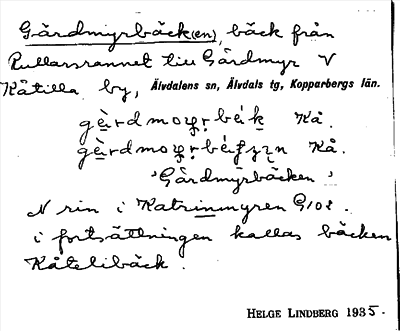 Gårdmyrbäck(en), bäck från
Rullarsrannet till Gårdmyr V
Kåtilla by, Älvdalens sn, Älvdals tg, Kopparbergs län.
Kå.
Kå.
'Gårdmyrbäcken'
N rin i Katrinmyren G102.
i fortsättningen kallas bäcken
Kåtelibäck.
HELGE LINDBERG 1935.